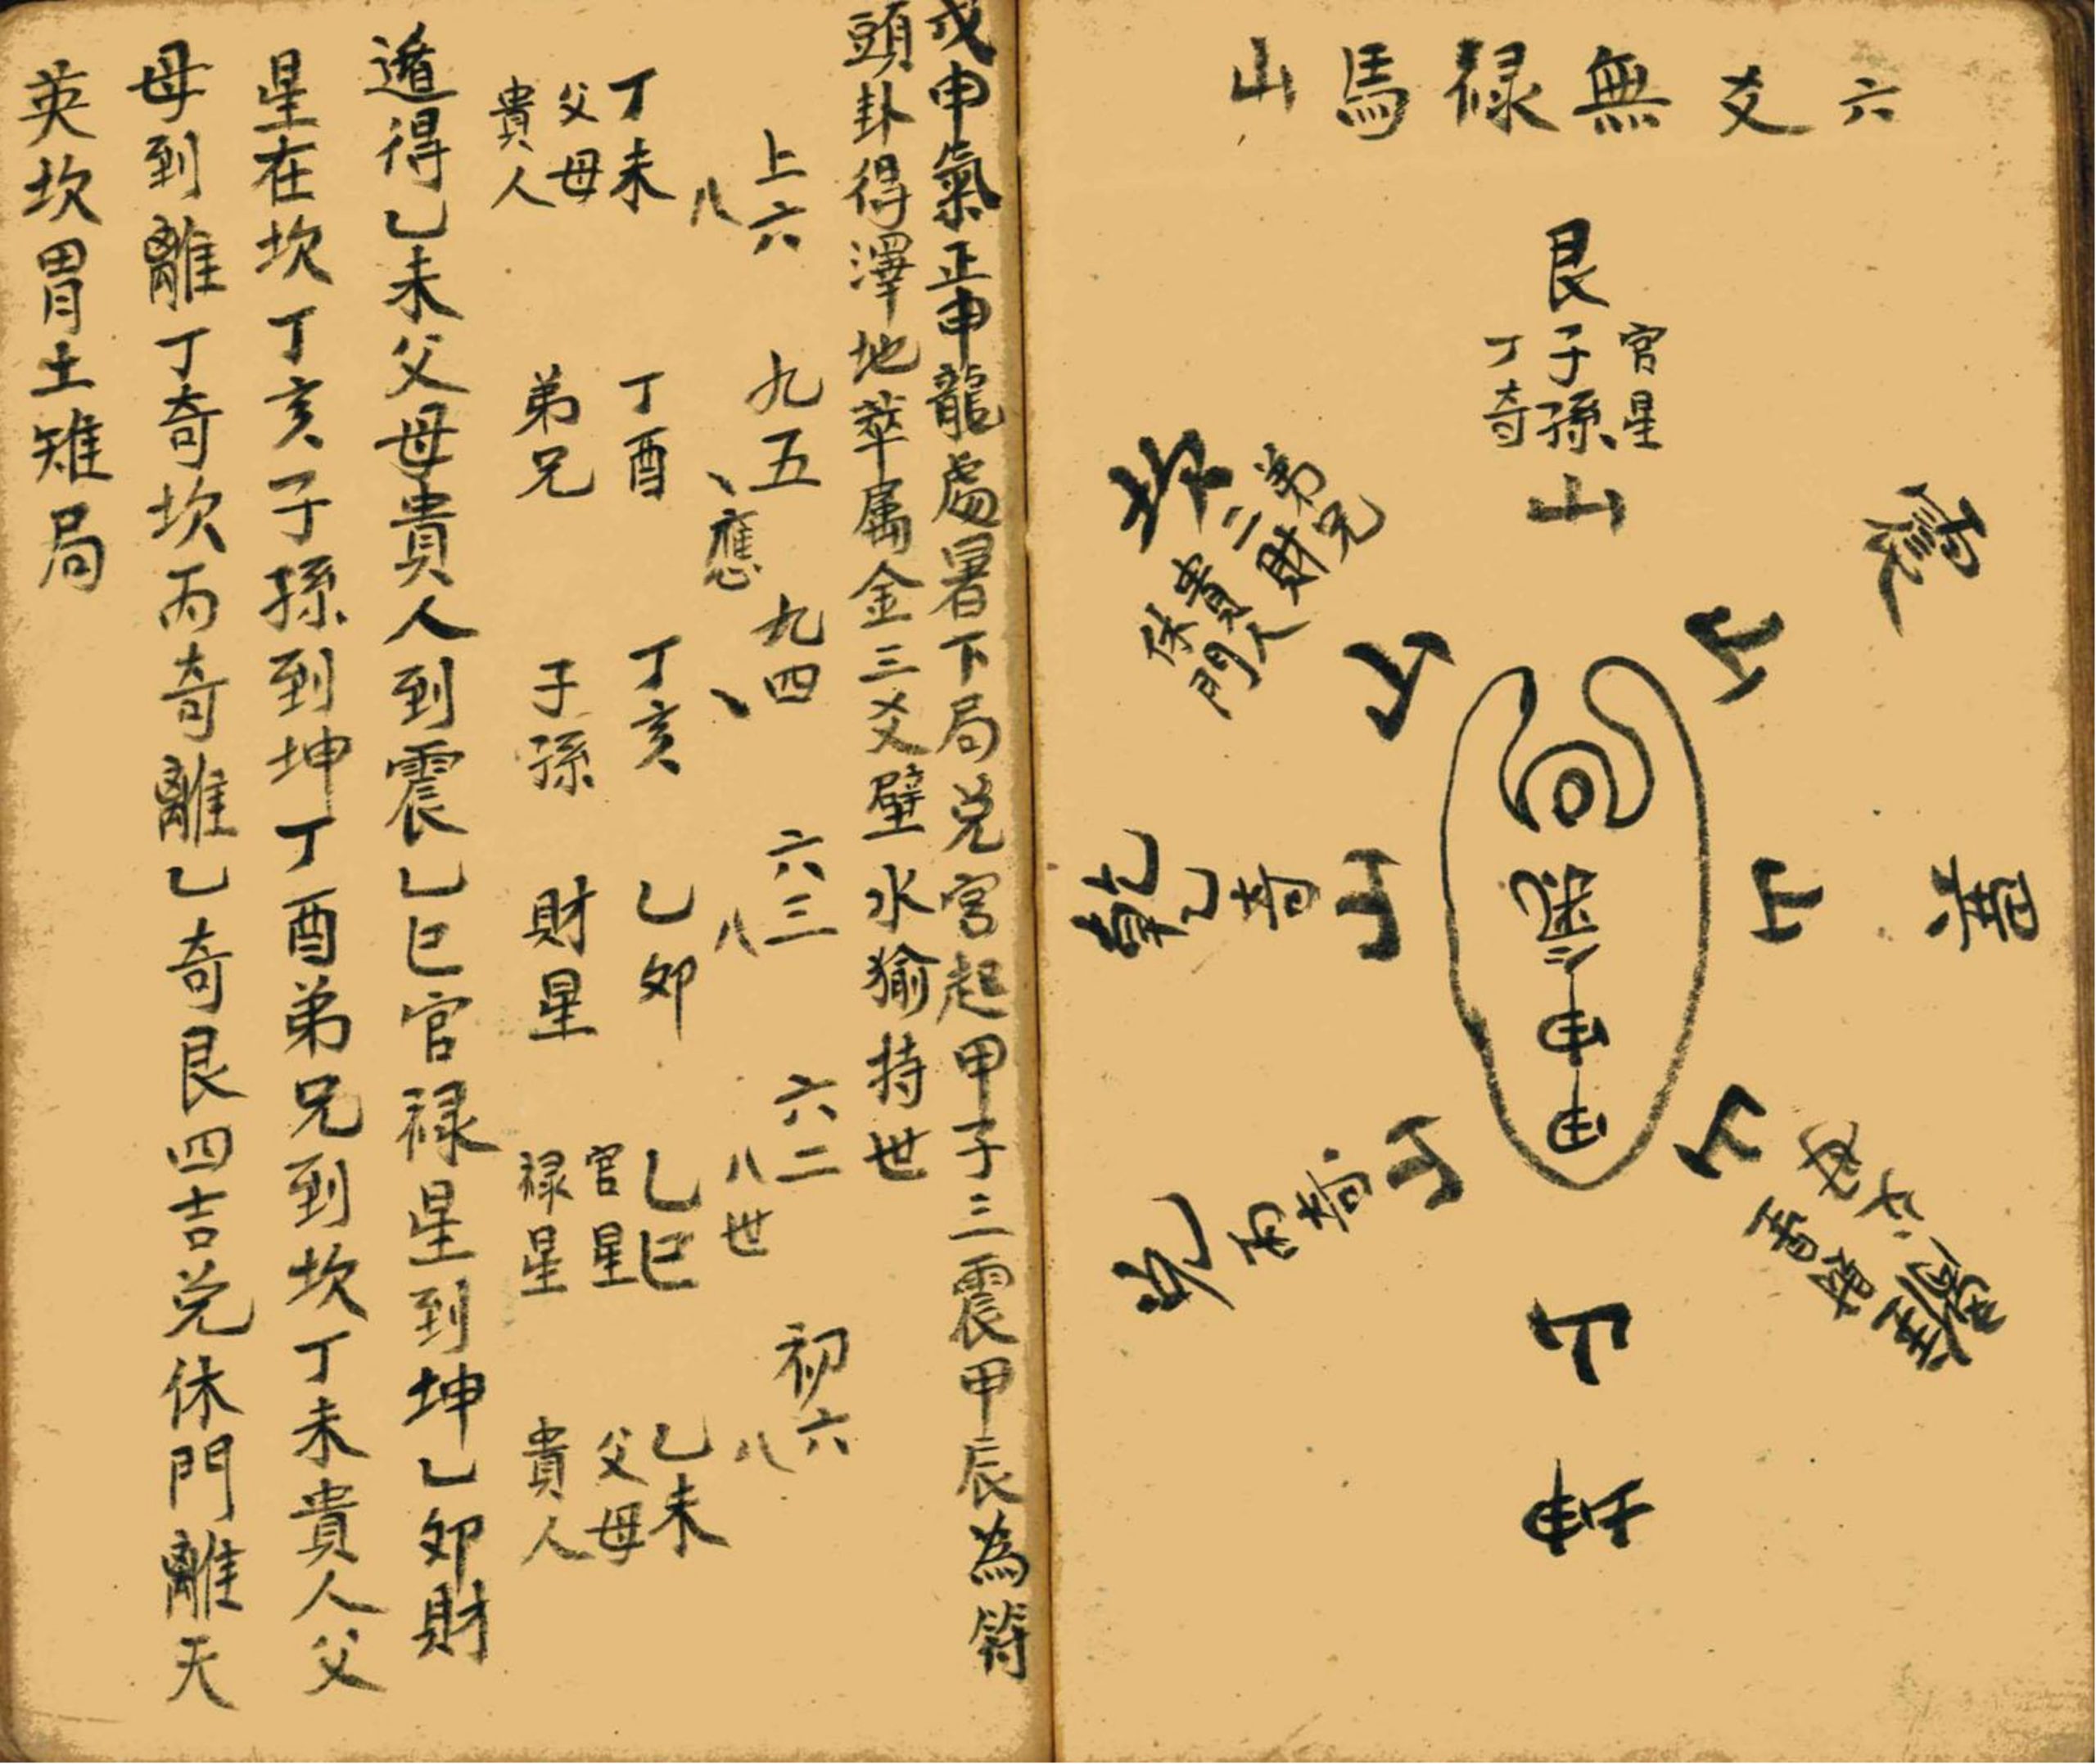 六爻無禄馬山
艮
官星
子孫
丁奇
山
震
山
巽
山
離
父母
貴人
山
坤
山
兌
丙奇
山
乾
乙奇
山
坎
弟兄
財
貴人
休門
山
戊申
戊申氣正申龍處暑下局兌宮起甲子三震甲辰為符
頭卦得澤地萃属金三爻壁水㺄持世
上六 九五 九四 六三 六二 初六
八 丶應 丶 八 八世 八
丁未 丁酉 丁亥 乙夘 乙巳 乙未
父母 弟兄 子孫 財星 官星 父母
貴人 禄星 貴人
遁得乙未父母貴人到震乙巳官禄星到坤乙夘財
星在坎丁亥子孫到坤丁酉弟兄到坎丁未貴人父
母到離丁奇坎丙奇離乙奇艮四吉兌休門離天
英坎胃土雉局